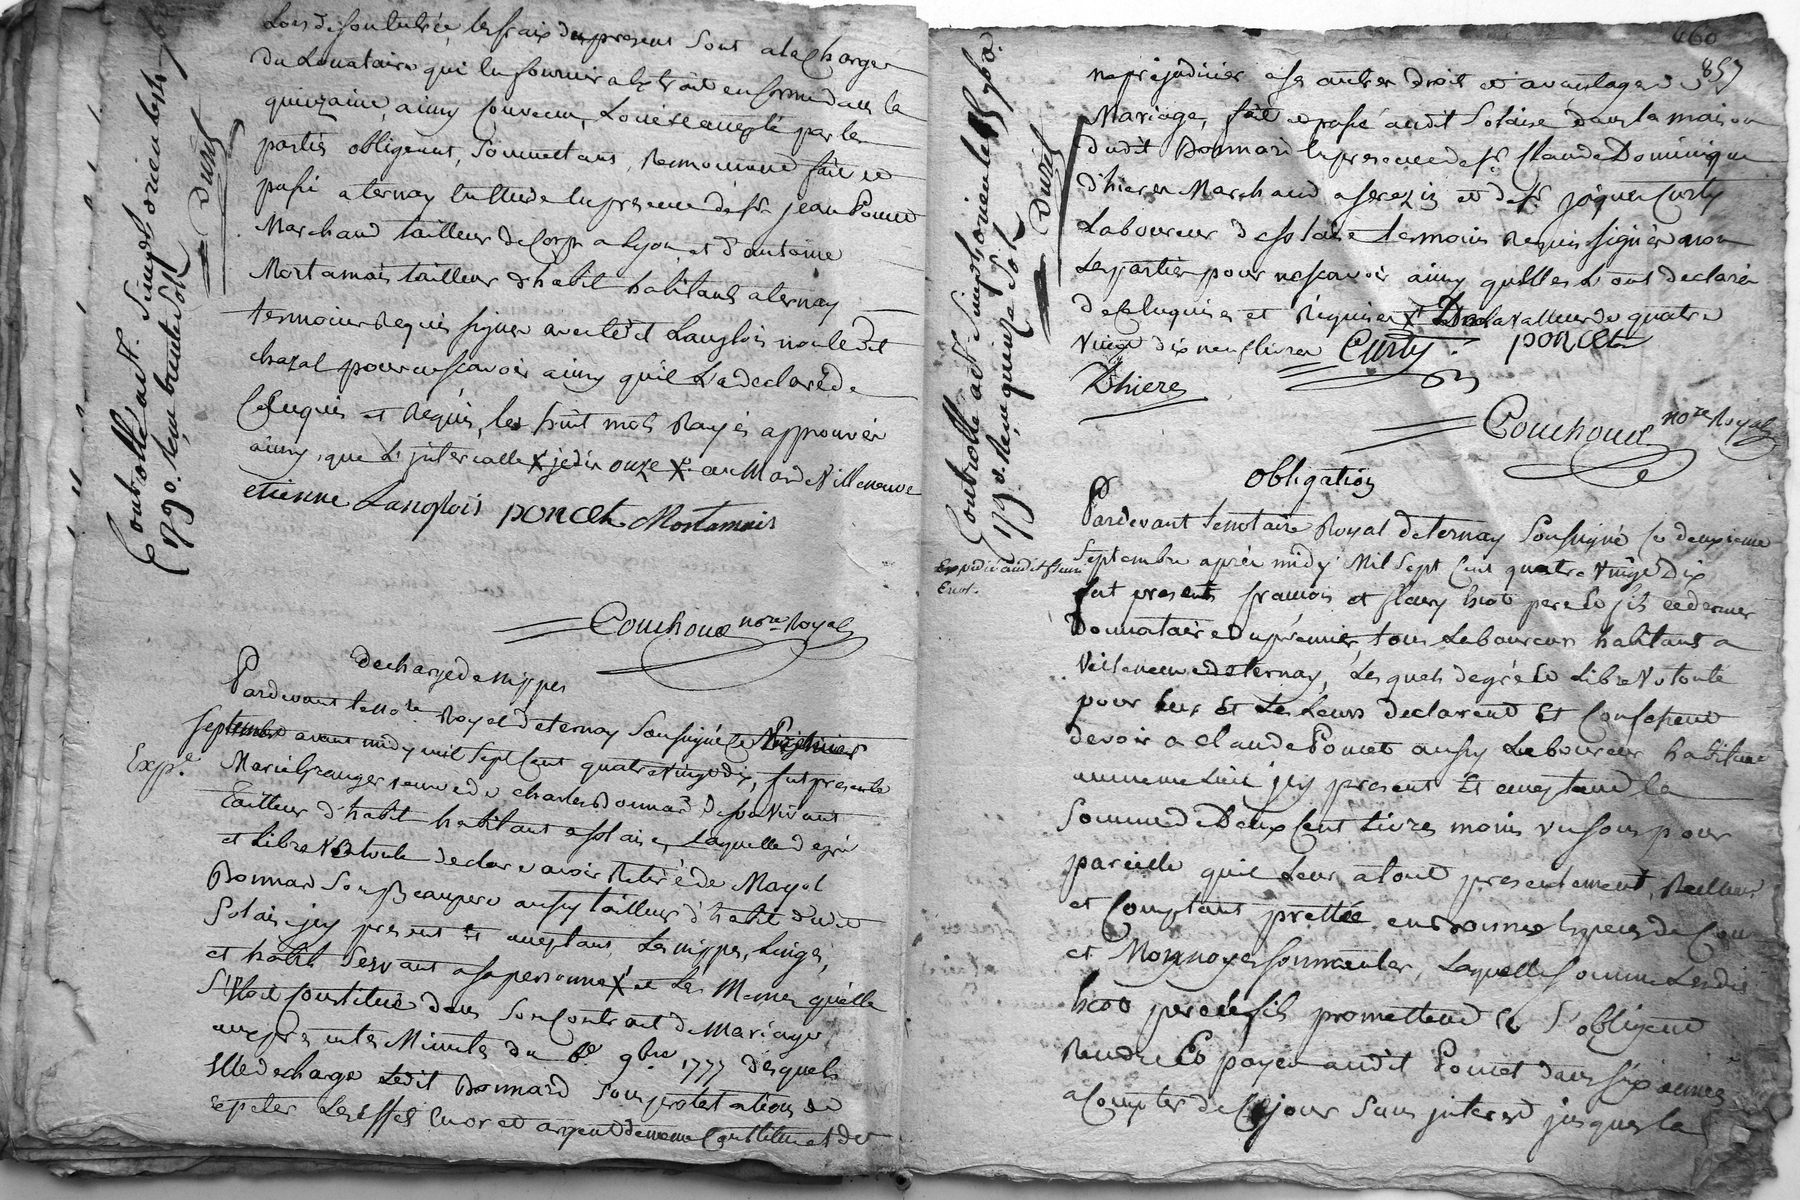 Lors de son entrée, les frais du present sont a la charge
du Locataire qui en fournira extrait en forme dans la
quinzaine, ainsy convenu, Loué et accepté par les
parties obligeant, Soumettant, Renonceant fait et
passé a ternay Etude en presence de sr. jean Poncet
Marchand tailleur de Corps a Lyon, et d'antoine
Mortamais tailleur d'habit habitant a ternay
temoins Requis signés avec ledit Langlois non ledit
chazal pour ne scavoir ainsy quil L'a declaré de
ce Enquis et Requis, les huit mots Rayés approuvés
ainsy que L'intervalle X jedis onze X
etienne Langlois poncet Mortamais
Couchoud nore Royal
Controllé a St. Simph. d'ozon le sept 7bre
1790. Reçu trente sols
Duret
decharge de nippes
Pardevant le nore. Royal de ternay Soussigné Ce Premier
Septembre avant midy mil Sept Cent quatre vingt dix, fut presente
Exp.e
Marie Granger veuve de charles Bonnard de son vivant
Tailleur d'habit habitant a solaise, Laquelle de gré
et Libre volonté declare avoir Retiré de Mayol
Bonnard Son Beaupere aussy tailleur d'habit dudit
Solaise jcy present Et acceptant, Les nippes, Linges,
et habits Servant a sa personne X et Les Memes qu'elle
S'Etoit constitué dans Son Contrat de Mariage
aux presentes Minutes du 6e. 9bre 1777 desquels
Elle decharge Ledit Bonnard Sous protestations de
repeter Les effets En or et argent de meme Constitués et de
857
ne préjudicier a ses autres droit et avantages de
Mariage, fait et passé audit Solaise dans la maison
dudit Bonnard En presence de sr. Claude Dominique
d'hieres Marchand a serezin et de sr. jaques Curty
Laboureur de solaise temoins Requis signés non
Les parties pour ne scavoir ainsy qu'elles L'ont declaré
de ce Enquises et Requises X De la valleur de quatre
vingt dix neuf livres Curty poncet
Dhieres
Couchoud nore Royal
Controllé a St. Simphorien le 15 7bre
1790. Reçu quinze sols
Duret
obligation
Pardevant le notaire Royal de ternay Soussigné Ce deuxieme
Septembre après midy Mil Sept Cent quatre vingt Dix
Expedié audit sieur
furent presents francois et fleury hiot pere Et fils ce dernier
Donnataire du premier, tous Laboureurs habitants a
Villeneuve de ternay, Lesquels de gré Et Libre volonté
pour Eux Et Les Leurs declarent Et Confessent
devoir a claude Poncet aussy Laboureur habitant
au meme Lieu jcy present Et acceptant la
Somme de Deux Cent Livres moins un sous pour
pareille quil Leur a tout presentement, Reellement
et Comptant prettée en Bonnes Especes de Cour
et Monnoyes sonnantes, Laquelle somme Lesdits
hiot pere et fils promettent et S'obligent
Rendre Et payer audit Poncet dans six années
a Compter de Ce jour Sans jnteret jusques la